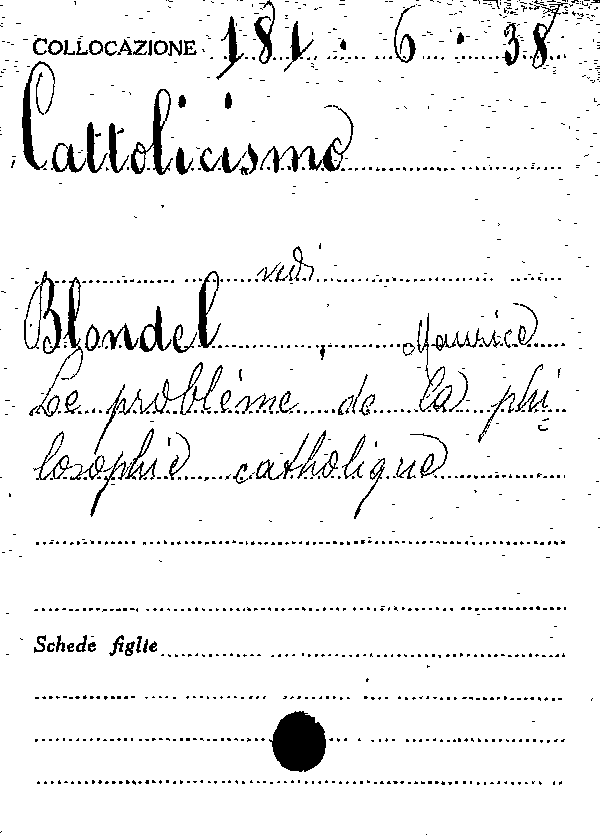 COLLOCAZIONE 181. 6. 38
Cattolicismo
vedi
Blondel, Maurice
Le problème de la phi=
losophie catholique
Schede figlie